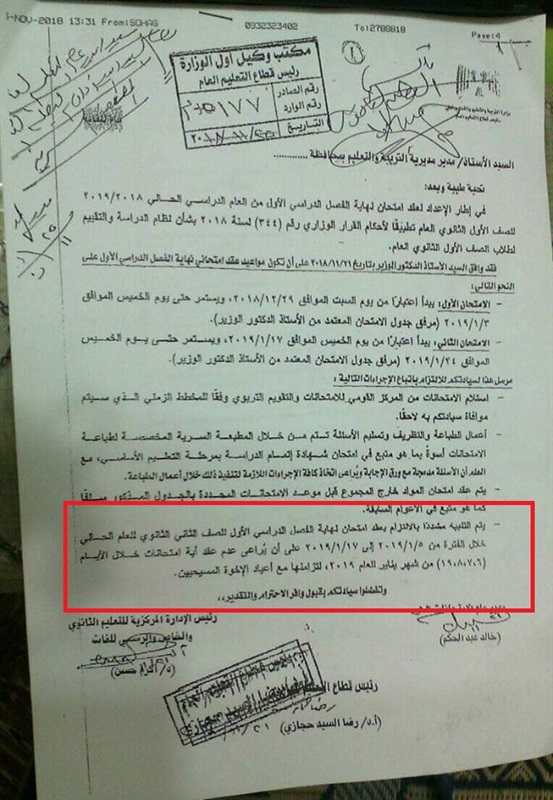 -NOV-2018 13:31 From:SOHAG 0932323402 To:2788818 Page:4
مكتب وكيل أول الوزارة
رئيس قطاع التعليم العام
رقم الصادر
رقم الوارد
التاريخ
السيد الأستاذ/ مدير مديرية التربية والتعليم بمحافظة ............
تحية طيبة وبعد:
في إطار الإعداد لعقد امتحان نهاية الفصل الدراسي الأول من العام الدراسي الحالي ٢٠١٩/٢٠١٨
للصف الأول الثانوي العام تطبيقًا لأحكام القرار الوزاري رقم (٣٤٤) لسنة ٢٠١٨ بشأن نظام الدراسة والتقييم
لطلاب الصف الأول الثانوي العام.
فقد وافق السيد الأستاذ الدكتور الوزير بتاريخ ٢٠١٨/١١/٢١ على أن تكون مواعيد عقد امتحاني نهاية الفصل الدراسي الأول على
النحو التالي:
- الامتحان الأول: يبدأ اعتبارًا من يوم السبت الموافق ٢٠١٨/١٢/٢٩، ويستمر حتى يوم الخميس الموافق
٢٠١٩/١/٣ (مرفق جدول الامتحان المعتمد من الأستاذ الدكتور الوزير).
- الامتحان الثاني: يبدأ اعتبارًا من يوم الخميس الموافق ٢٠١٩/١/١٧، ويستمر حتى يوم الخميس
الموافق ٢٠١٩/١/٢٤ (مرفق جدول الامتحان المعتمد من الأستاذ الدكتور الوزير).
مرسل هذا لسيادتكم للالتزام باتباع الإجراءات التالية:
- استلام الامتحانات من المركز القومي للامتحانات والتقويم التربوي وفقًا للمخطط الزمني الذي سيتم
موافاة سيادتكم به لاحقًا.
- أعمال الطباعة والتظريف وتسليم الأسئلة تتم من خلال المطبعة السرية المخصصة لطباعة
الامتحانات أسوةً بما هو متبع في امتحان شهادة إتمام الدراسة بمرحلة التعليم الأساسي، مع
العلم أن الأسئلة مدمجة مع ورق الإجابة ويُراعى اتخاذ كافة الإجراءات اللازمة لتنفيذ ذلك خلال أعمال الطباعة.
- يتم عقد امتحان المواد خارج المجموع قبل موعد الامتحانات المحددة بالجدول المذكور سلفًا
كما هو متبع في الأعوام السابقة.
- يتم التنبيه مشددًا بالالتزام بعقد امتحان نهاية الفصل الدراسي الأول للصف الثاني الثانوي للعام الحالي
خلال الفترة من ٢٠١٩/١/٥ إلى ٢٠١٩/١/١٧ على أن يُراعى عدم عقد أية امتحانات خلال الأيام
(١٩،٨،٧،٦) من شهر يناير للعام ٢٠١٩، لتزامنها مع أعياد الإخوة المسيحيين.
وتفضلوا سيادتكم بقبول وافر الاحترام والتقدير،،
(خالد عبد الحكم)
رئيس الإدارة المركزية للتعليم الثانوي
والخاص والرسمي للغات
(د/ أكرم حسن)
رئيس قطاع التعليم
(أ.د/ رضا السيد حجازي)